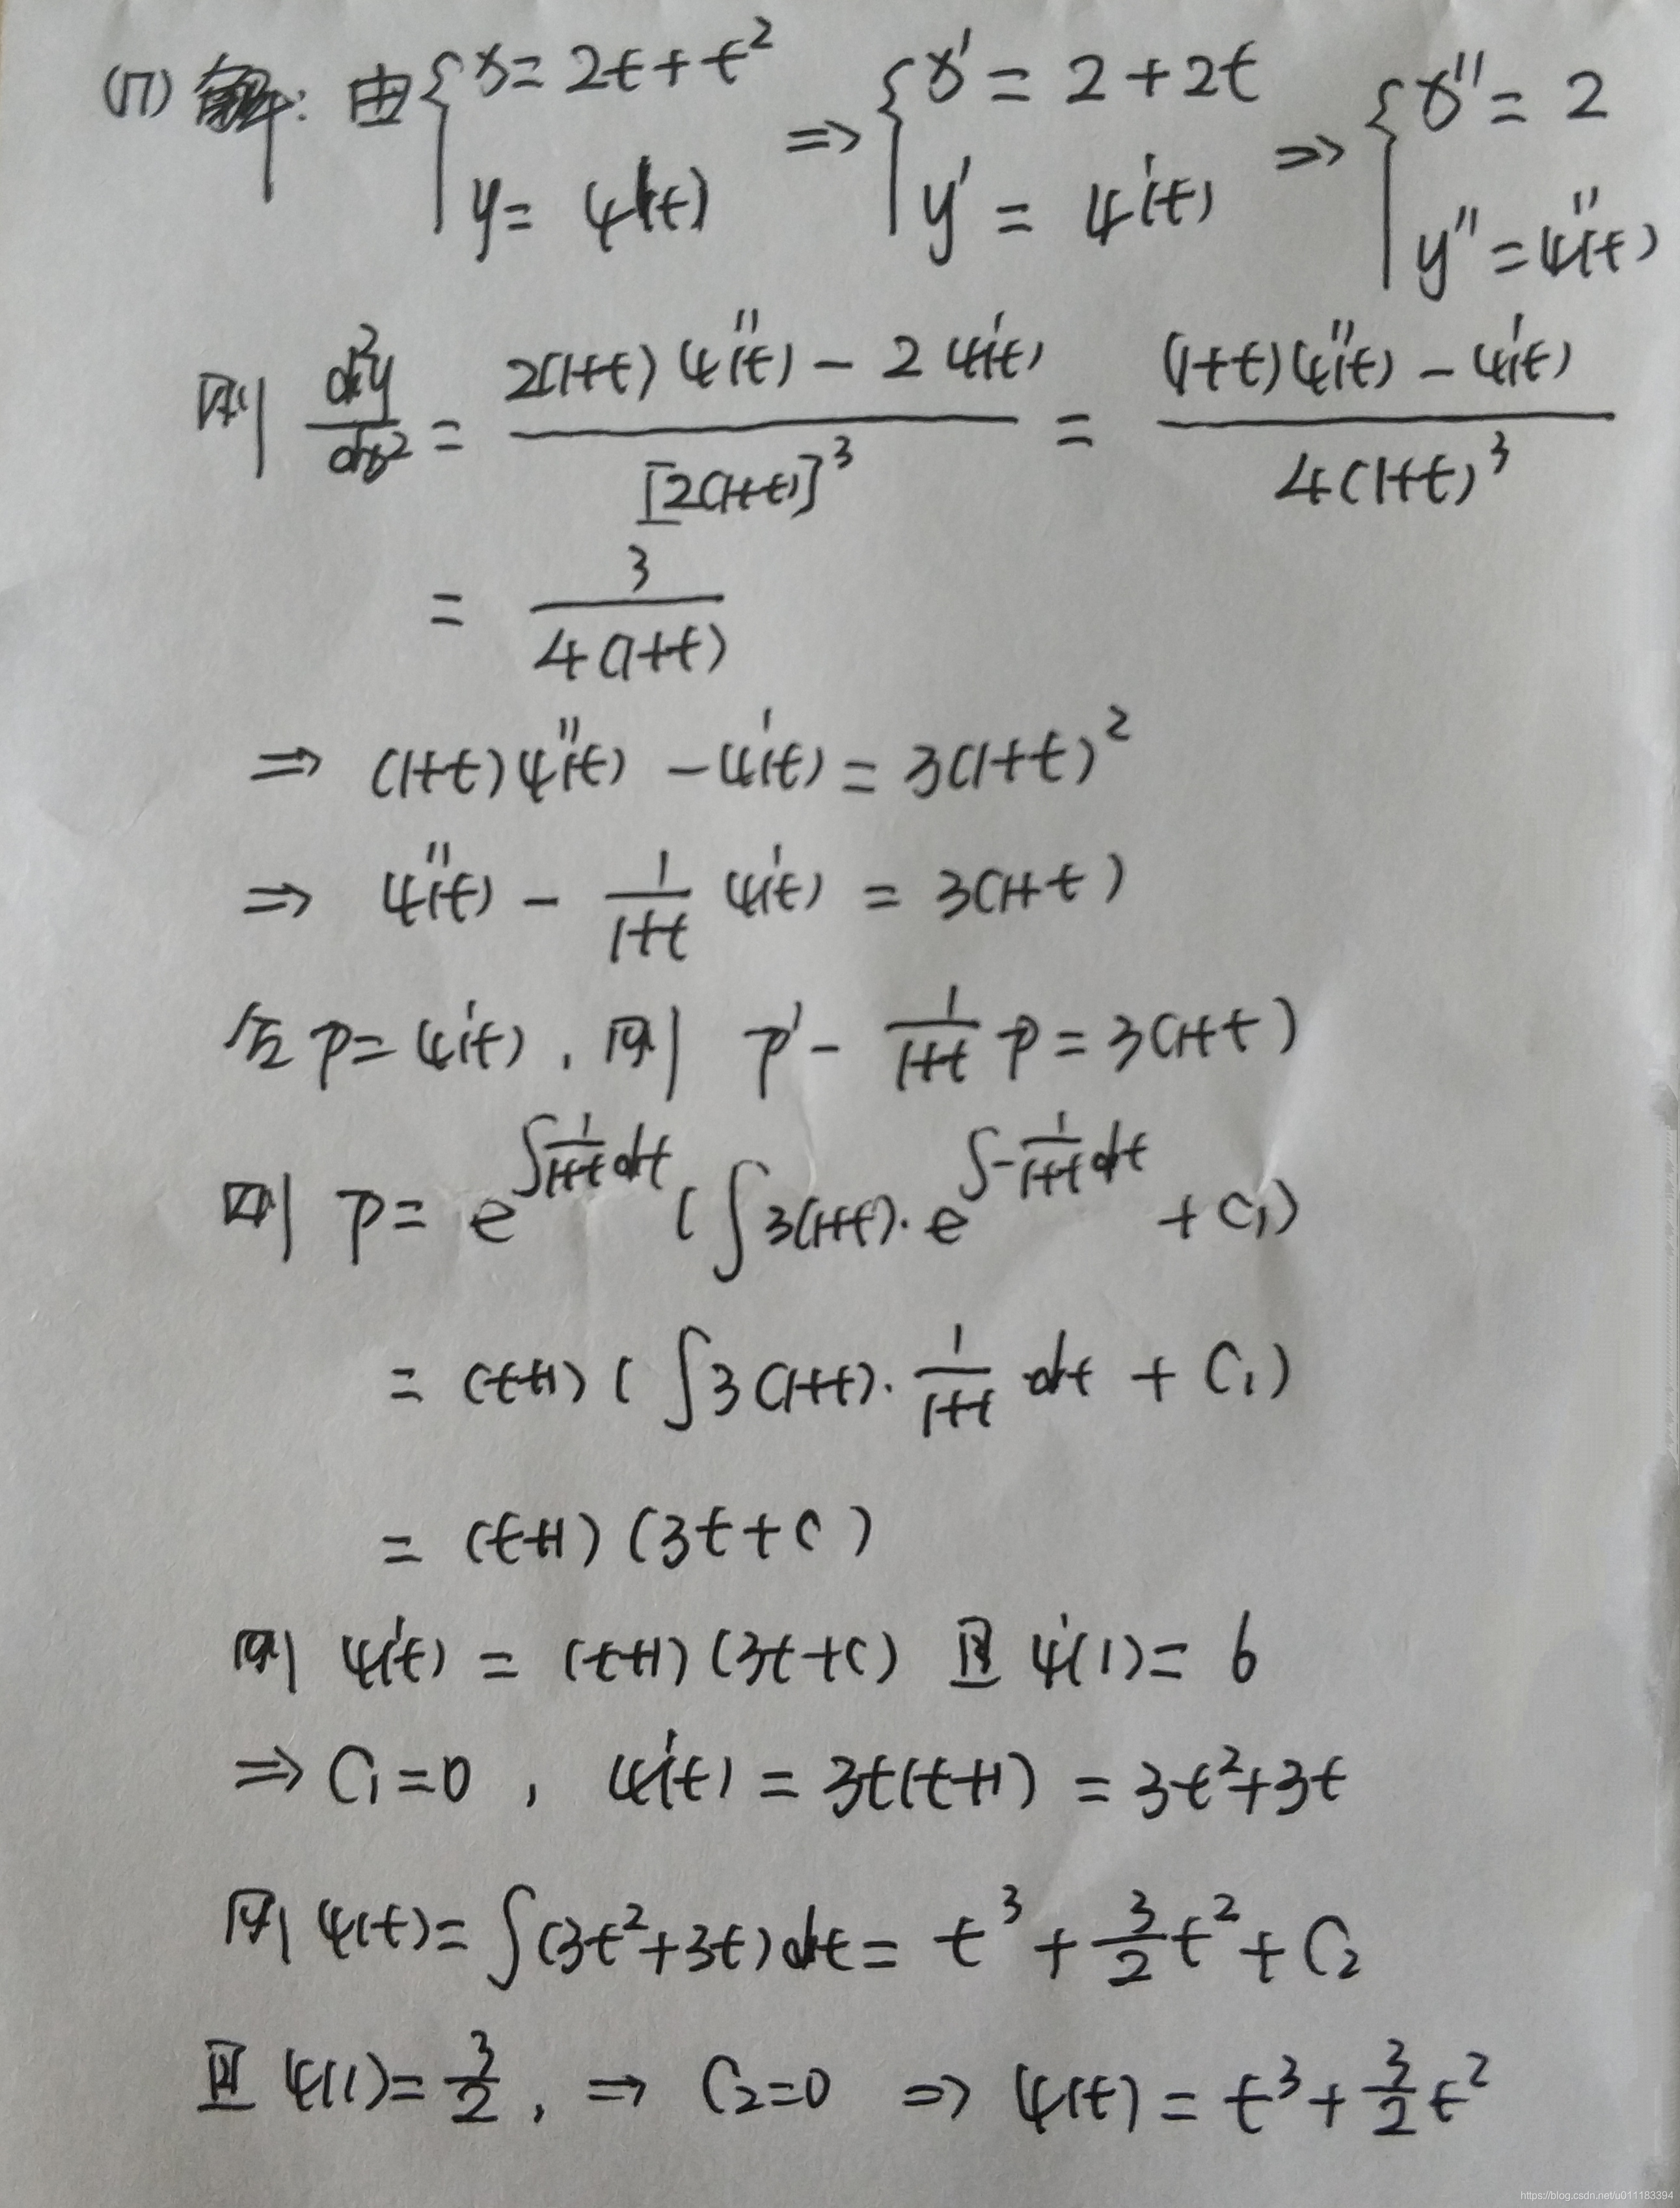 (17) 解: 由 { x = 2t + t² y = ψ(t) ⇒ { x' = 2 + 2t y' = ψ'(t) ⇒ { x'' = 2 y'' = ψ''(t)
则 d²y/dx² = (2(1+t)ψ''(t) - 2ψ'(t))/[2(1+t)]³ = ((1+t)ψ''(t) - ψ'(t))/(4(1+t)³)
= 3/(4(1+t))
⇒ (1+t)ψ''(t) - ψ'(t) = 3(1+t)²
⇒ ψ''(t) - 1/(1+t) ψ'(t) = 3(1+t)
令 p = ψ'(t), 则 p' - 1/(1+t) p = 3(1+t)
则 p = e^{∫1/(1+t) dt} (∫3(1+t)·e^{∫-1/(1+t) dt} + C₁)
= (t+1)(∫3(1+t)·1/(1+t) dt + C₁)
= (t+1)(3t+C)
则 ψ'(t) = (t+1)(3t+C) 且 ψ'(1) = 6
⇒ C₁=0, ψ'(t) = 3t(t+1) = 3t²+3t
则 ψ(t) = ∫(3t²+3t)dt = t³ + 3/2 t² + C₂
且 ψ(1) = 3/2, ⇒ C₂=0 ⇒ ψ(t) = t³ + 3/2 t²
https://blog.csdn.net/u011183394